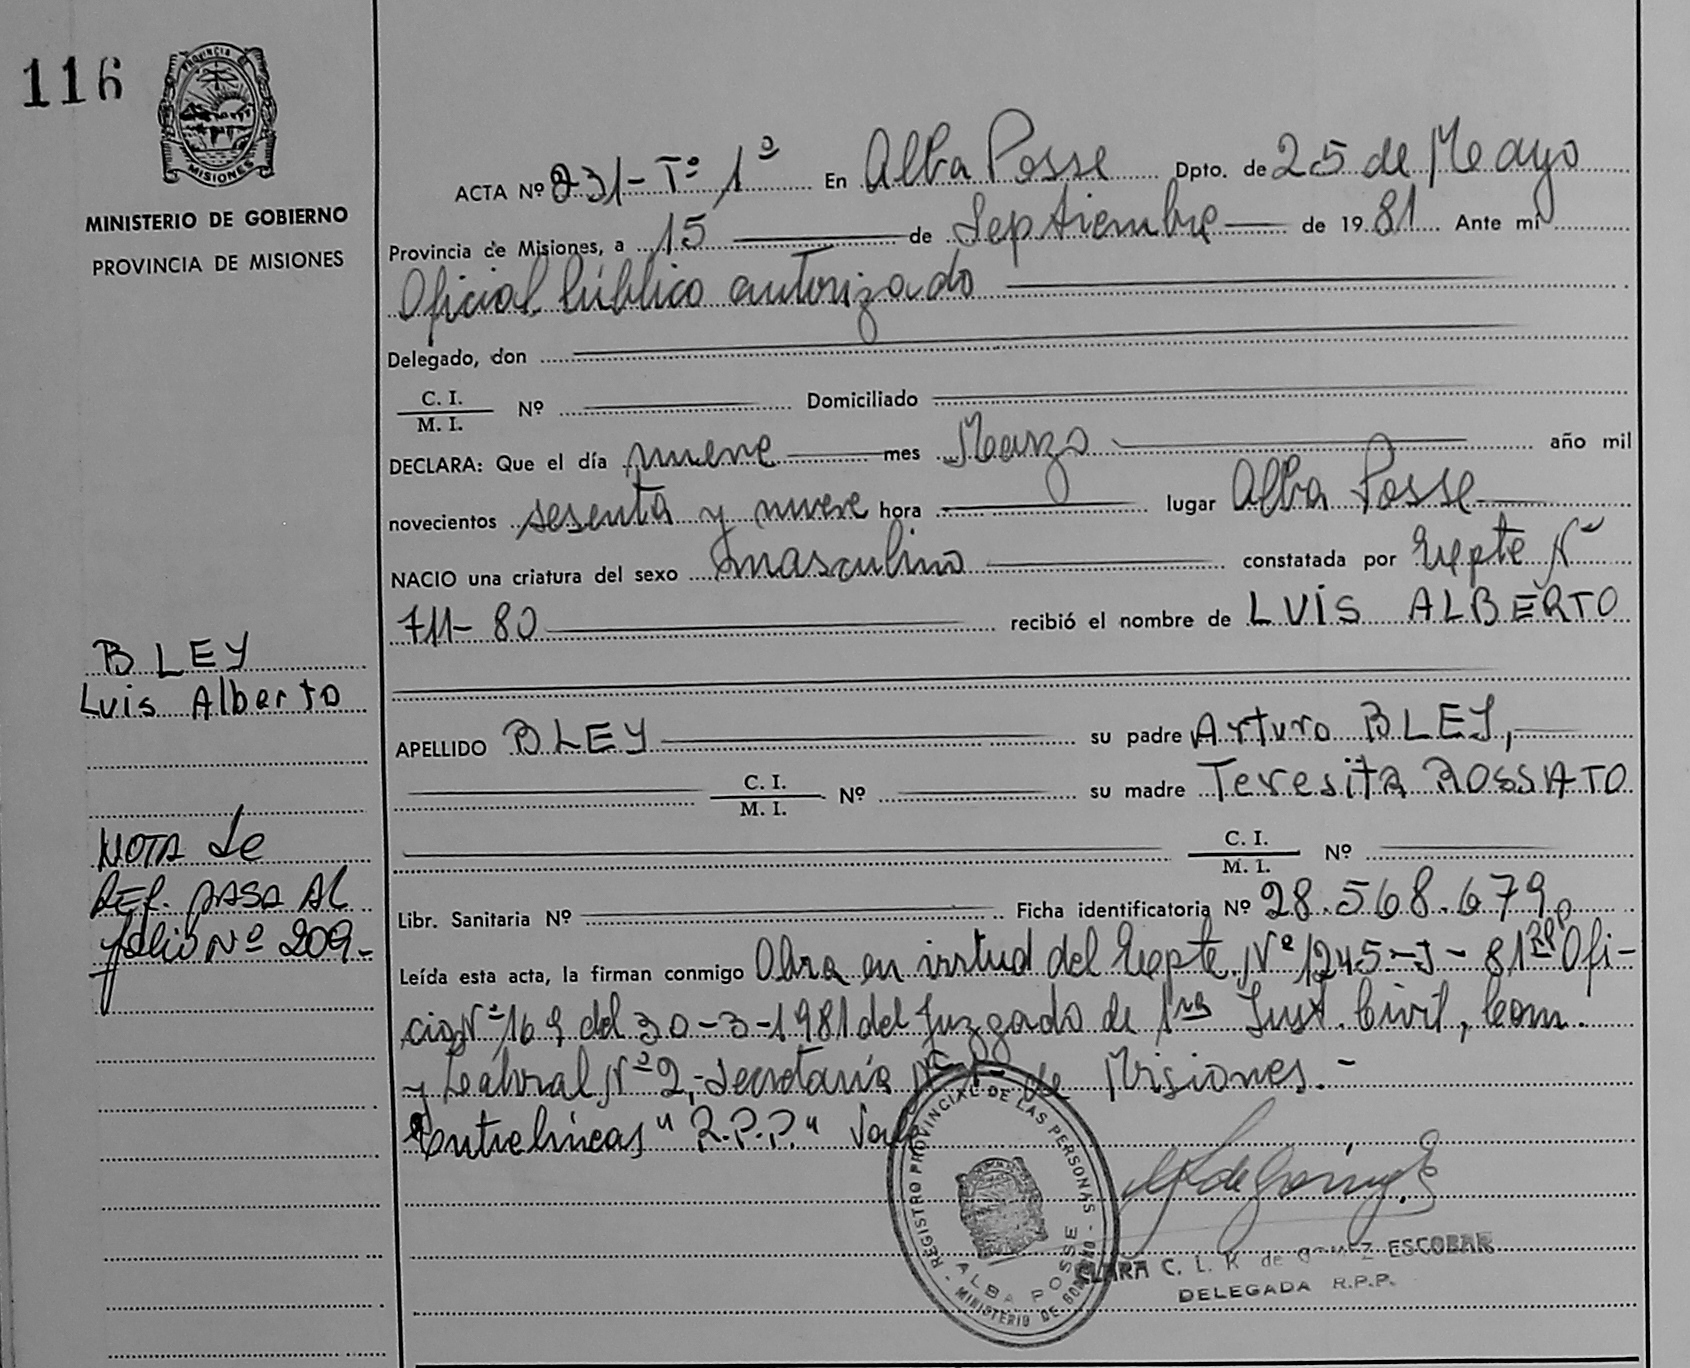 116
PROVINCIA DE
MISIONES
MINISTERIO DE GOBIERNO
PROVINCIA DE MISIONES
ACTA Nº 231-Tº 1º En Alba Posse Dpto. de 25 de Mayo
Provincia de Misiones, a 15 de Septiembre de 1981 Ante mí
Oficial Público autorizado
Delegado, don
C. I.
M. I. Nº Domiciliado
DECLARA: Que el día nueve mes Marzo año mil
novecientos sesenta y nueve hora lugar Alba Posse
NACIO una criatura del sexo masculino constatada por Expte Nº
711-80 recibió el nombre de LUIS ALBERTO
BLEY
Luis Alberto
APELLIDO BLEY su padre Arturo BLEY,
C. I.
M. I. Nº su madre Teresita ROSSATO
C. I.
M. I. Nº
NOTA de
REF. PASA AL
folio Nº 209-
Libr. Sanitaria Nº Ficha identificatoria Nº 28.568.679
Leída esta acta, la firman conmigo Obra en virtud del Expte. Nº 1245-J-81 RPP Ofi-
cio Nº 169 del 30-3-1981 del Juzgado de 1ra Inst. Civil, Com.
y Laboral Nº 2,-Secretaría Nº de Misiones.-
Entrelíneas "R.P.P." Vale
REGISTRO PROVINCIAL DE LAS PERSONAS - MINISTERIO DE GOBIERNO -
ALBA POSSE
CLARA C. L. K de GOMEZ ESCOBAR
DELEGADA R.P.P.